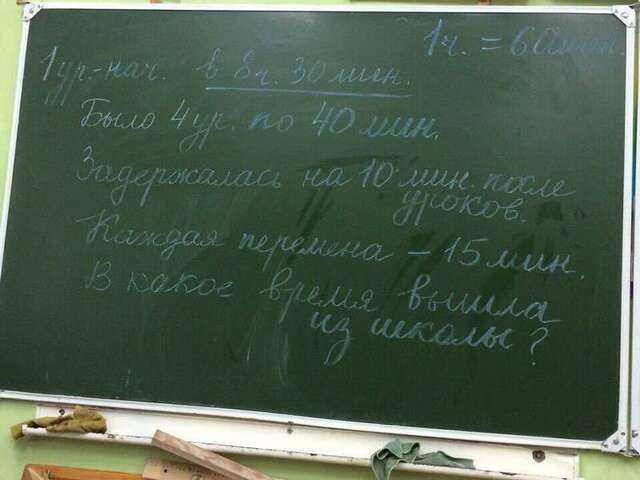 1ч. = 60мин.
1 ур.-нач. в 8ч. 30 мин.
Было 4 ур. по 40 мин.
Задержалась на 10 мин. после
уроков.
Каждая перемена – 15 мин.
В какое время вышла
из школы?